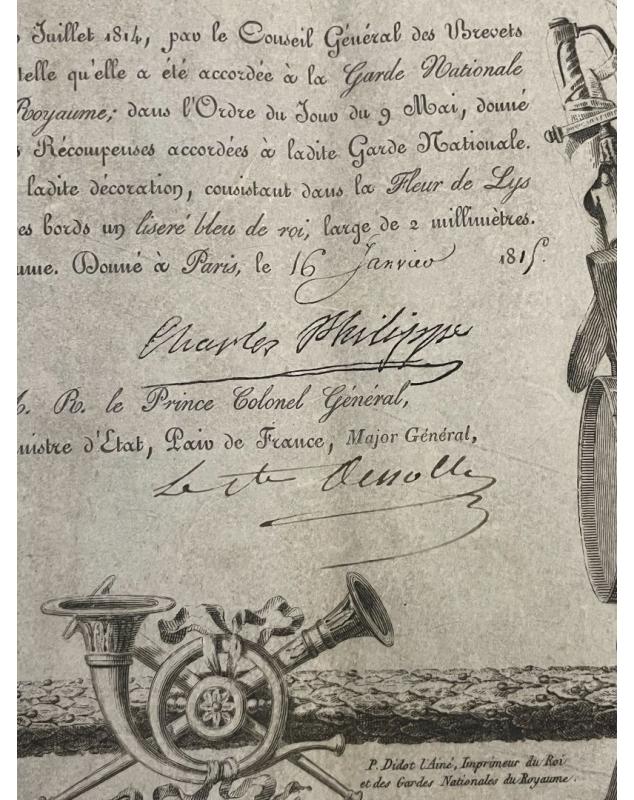 Juillet 1814, par le Conseil Général des Brevets
telle qu'elle a été accordée à la Garde Nationale
Royaume; dans l'Ordre du Jour du 9 Mai, donné
Récompenses accordées à ladite Garde Nationale.
ladite décoration, consistant dans la Fleur de Lys
es bords un liseré bleu de roi, large de 2 millimètres.
ume. Donné à Paris, le 16 Janvier 1815.
Charles Philippe
A. R. le Prince Colonel Général,
nistre d'Etat, Pair de France, Major Général,
Le Cte Dessolle
P. Didot l'Ainé, Imprimeur du Roi
et des Gardes Nationales du Royaume.